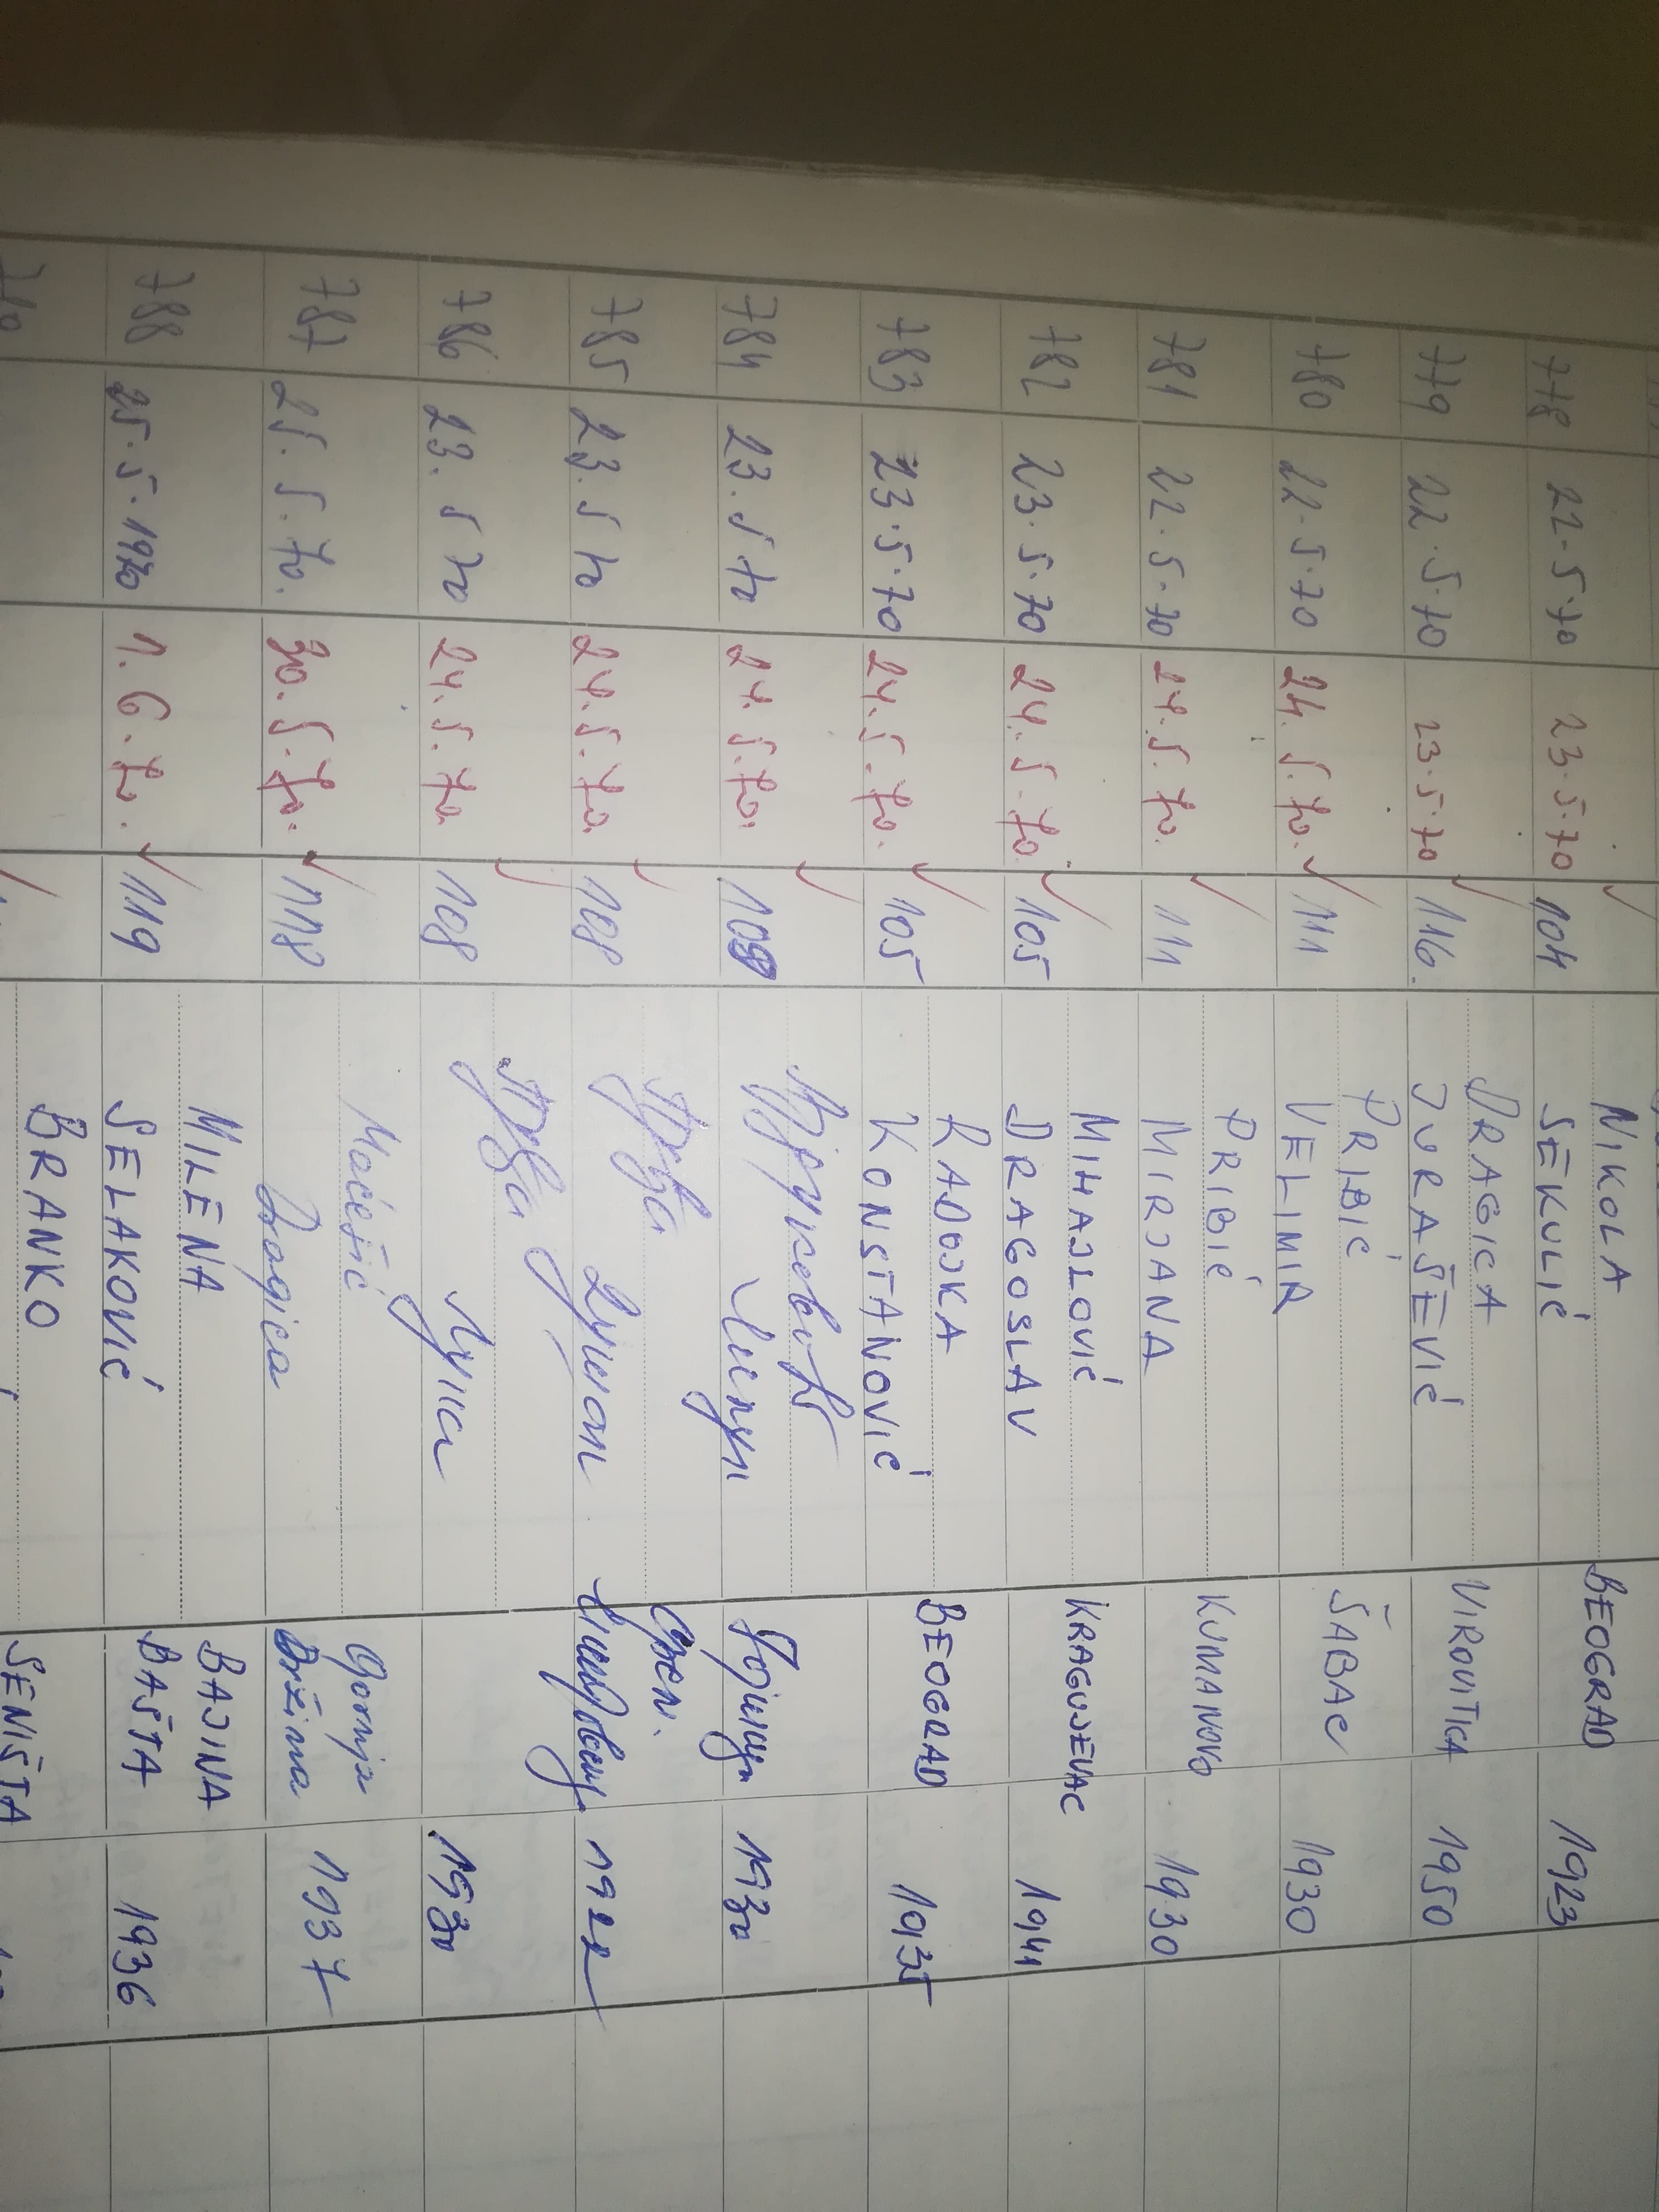 NIKOLA
778 22.5.70 23.5.70 104 SEKULIĆ BEOGRAD 1923
DRAGICA
779 22.5.70 23.5.70 116. JURAŠEVIĆ VIROVITICA 1950
PRIBIĆ
780 22.5.70 24.5.70. 111 VELIMIR ŠABAC 1930
PRIBIĆ
781 22.5.70 24.5.70. 111 MIRJANA KUMANOVO 1930
MIHAJLOVIĆ
782 23.5.70 24.5.70. 105 DRAGOSLAV KRAGUJEVAC 1941
RADOJKA
783 23.5.70 24.5.70. 105 KONSTANOVIĆ BEOGRAD 1935
784 23.5.70 24.5.70. 1930
785 23.5.70 24.5.70. 108 Душан 1922
786 23.5.70 24.5.70. 108 1930
Maćešić Gornja
787 25.5.70. 30.5.70. 118 Dragica 1937
MILENA BAJINA
788 25.5.1970 1.6.70. 119 SELAKOVIĆ BAŠTA 1936
BRANKO SENIŠTA